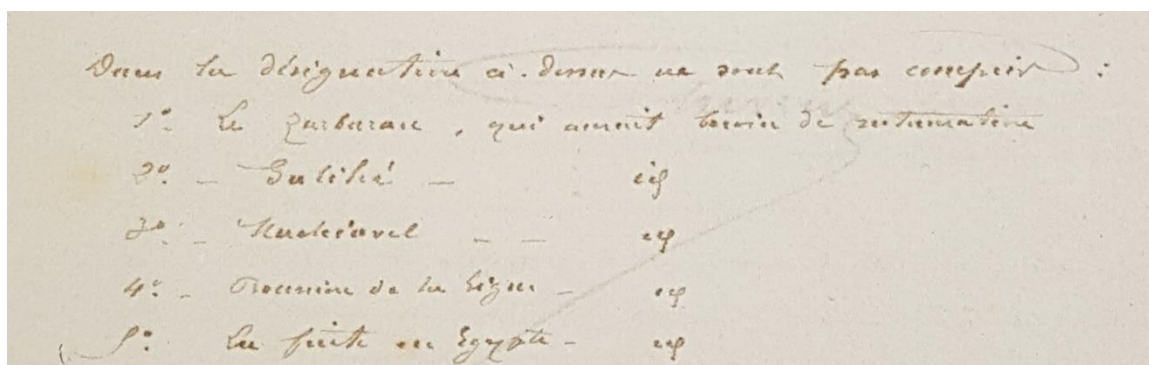 Dans la désignation ci-dessus ne sont pas compris :
1º. Le Zurbaran, qui aurait besoin de restauration
2º. - Galilée - id
3º. - Machiavel - - id
4º. - Réunion de la Ligue - id
5º. La fuite en Egypte - id